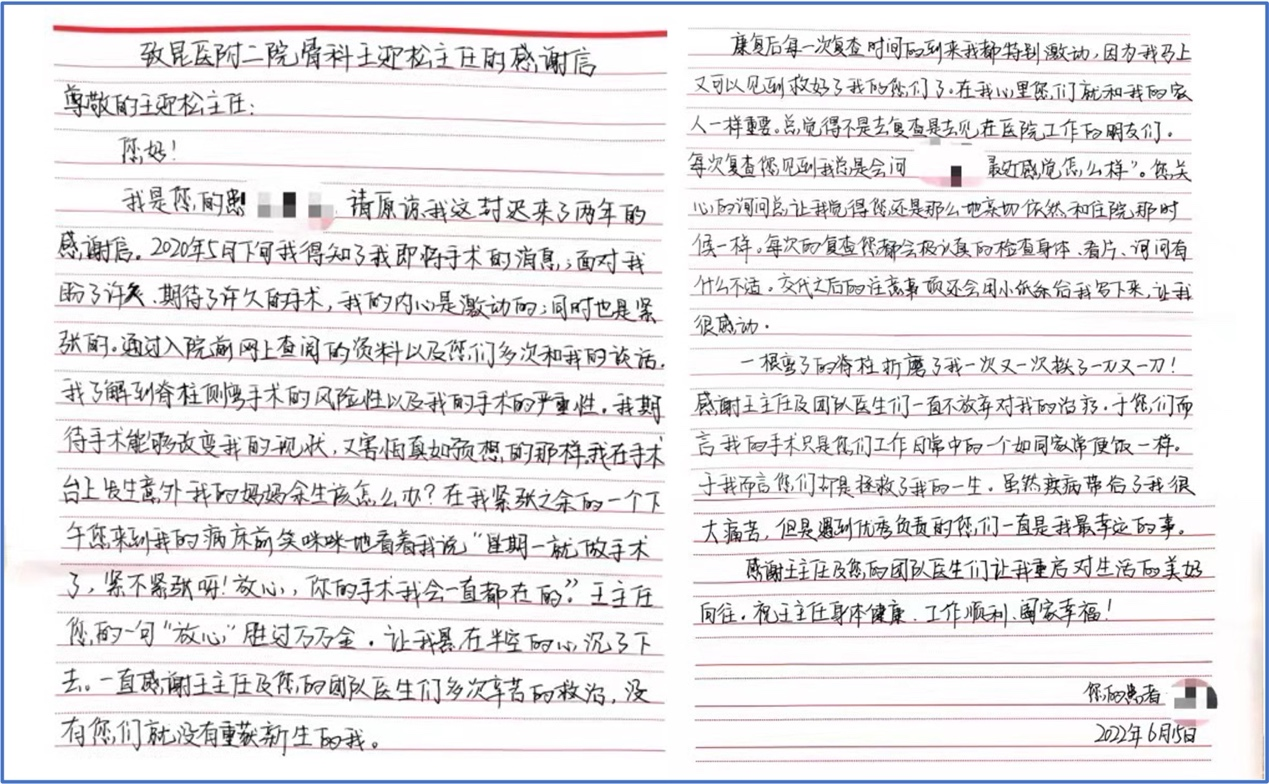 致昆医附二院骨科王迎松主任的感谢信
尊敬的王迎松主任：
您好！
我是您的患 请原谅我这封迟来了两年的
感谢信。2020年5月下旬我得知了我即将手术的消息；面对我
盼了许久、期待了许久的手术，我的内心是激动的；同时也是紧
张的。通过入院前网上查阅的资料以及您们多次和我的谈话，
我了解到脊柱侧弯手术的风险性以及我的手术的严重性。我期
待手术能够改变我的现状，又害怕真如预想的那样，我在手术
台上发生意外我的妈妈余生该怎么办？在我紧张之余的一个下
午您来到我的病床前笑咪咪地看着我说“星期一就做手术
了，紧不紧张呀！放心，你的手术我会一直都在的”。王主任
您的一句“放心”胜过万万金。让我悬在半空的心沉了下
去。一直感谢王主任及您的团队医生们多次辛苦的救治，没
有您们就没有重获新生的我。
康复后每一次复查时间的到来我都特别激动，因为我马上
又可以见到救好了我的您们了。在我心里您们就和我的家
人一样重要。总觉得不是去复查是去见在医院工作的朋友们。
每次复查您见到我总是会问 最近感觉怎么样”。您关
心的询问总让我觉得您还是那么地亲切依然和住院那时
候一样。每次的复查您都会极认真的检查身体、看片、询问有
什么不适。交代之后的注意事项还会用小纸条给我写下来，让我
很感动。
一根弯了的脊柱折磨了我一次又一次挨了一刀又一刀！
感谢王主任及团队医生们一直不放弃对我的治疗。于您们而
言我的手术只是您们工作日常中的一个如同家常便饭一样。
于我而言您们却是拯救了我的一生。虽然疾病带给了我很
大痛苦，但是遇到优秀负责的您们一直是我最幸运的事。
感谢王主任及您的团队医生们让我重启对生活的美好
向往。祝王主任身体健康、工作顺利、阖家幸福！
您的患者
2022年6月15日